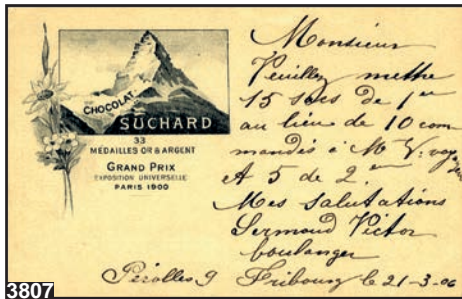 CHOCOLAT
SUCHARD
33
MÉDAILLES OR & ARGENT
GRAND PRIX
EXPOSITION UNIVERSELLE
PARIS 1900
Monsieur
Veuillez mettre
15 sacs de 1er
au lieu de 10 com
mandés à Mr V. voyageur
et 5 de 2e
Mes salutations
Sermoud Victor
boulanger
Pérolles 9 Fribourg le 21-3-06
3807